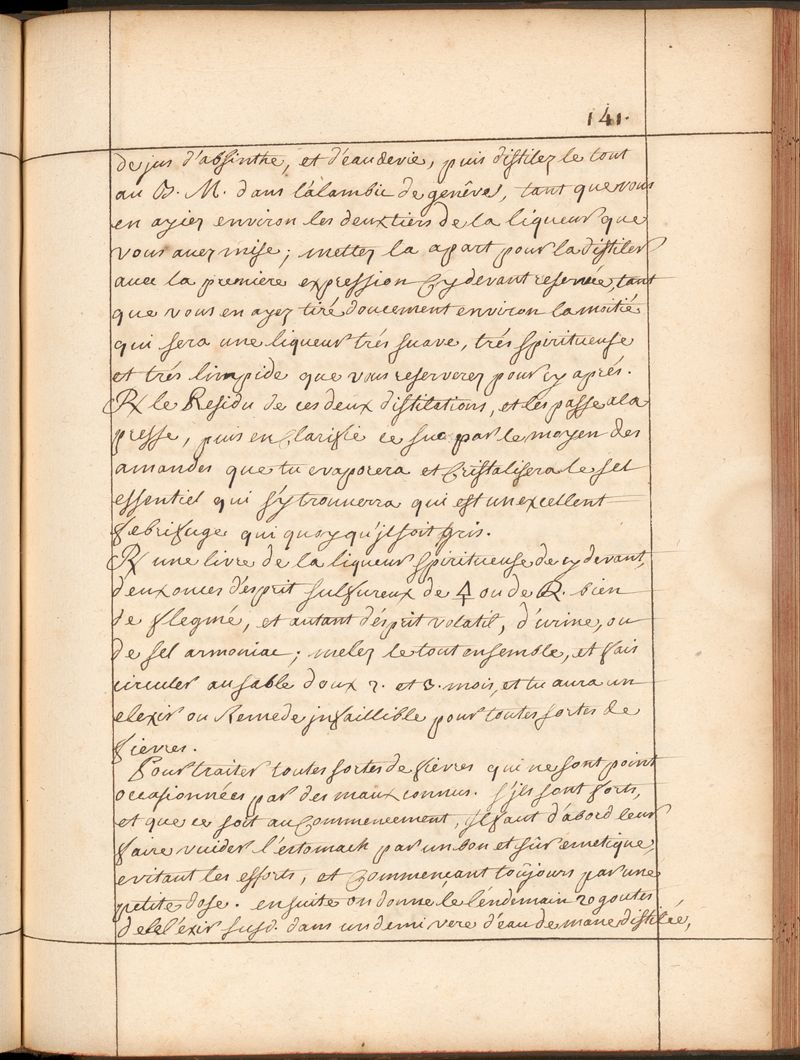 141.
de jus d'absinthe, et d'eau devie, puis distilez le tout
au B. M. dans l'alambic de genêve, tant que vous
en ayiez environ les deux tiers de la liqueur que
vous avez mise; mettez la apart pour la distiler
avec la premiere expression Cy devant reservée, tant
que vous en ayez tiré doucement environ la moitié
qui sera une liqueur trés suave, trés spiritueuse
et trés limpide que vous reserverez pour cy aprés.
℞ le Residu de ces deux distilations, et les passe a la
presse, puis en Clarifie ce suc par le moyen des
amandes que tu evaporera et Cristalisera le sel
essentiel qui s'y trouverra qui est un excellent
febrifuge qui quoy qu'jl soit gris.
℞ une livre de la liqueur spiritueuse de cy devant,
deux onces d'esprit sulfureux de 🜍 ou de bien
de flegmé, et autant d'ésprit volatil, d'urine, ou
de sel armoniac; melez le tout ensemble, et fais
circuler au sable doux 2. et 3. mois, et tu aura un
elexir ou Remede jnfaillible pour toutes sortes de
fievres.
Pour traiter toutes sortes de fiévres qui ne sont point
occasionnées par des maux connus. s'jls sont forts,
et que ce soit au Commencement, jl faut d'abord leur
faire vuider l'estomach par un bon et sûr emetique,
evitant les efforts, et Commencant toûjours par une
petite dose. ensuite on donne le léndemain 20 goutes
de l'éxir susd. dans un demi vere d'eau de mane distilée,